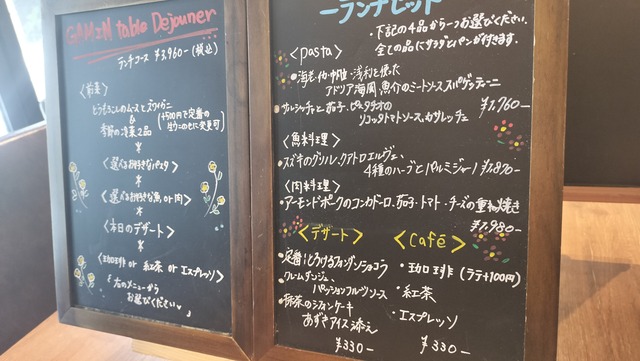 GAMIN table Dejeuner
ランチコース ¥3,960-(税込)
〈前菜〉
とうもろこしのムースとズワイガニ
&
季節の冷菜2品
(+500円で定番の
生ウニのせに変更可)
*
〈選べるお好きなパスタ〉
*
〈選べるお好きな魚 or 肉〉
*
〈本日のデザート〉
*
〈珈琲 or 紅茶 or エスプレッソ〉
「右のメニューから
お選びください
ーランチセットー
・下記の4品から一つお選びください。
全ての品にサラダとパンが付きます。
〈pasta〉
・海老・他・帆立・浅利を使た
アドリア海風 魚介のミートソース スパゲッティーニ
・サルシッチャと茄子、ピスタチオの
リコッタトマトソース カサレッチェ
¥1,760-
〈魚料理〉
・スズキのグリル、クアトロエルヴェ
4種のハーブとパルミジャーノ ¥1,870-
〈肉料理〉
・アーモンドポークのコンカドーロ、茄子・トマト・チーズの重ね焼き
¥1,980-
〈デザート〉
・定番!とろけるフォンダンショコラ
・クレームダンジュ、
パッションフルーツソース
・抹茶のシフォンケーキ
あずきアイス添え
¥330-
〈Café〉
・珈琲 (ラテ+100円)
・紅茶
・エスプレッソ
¥330-